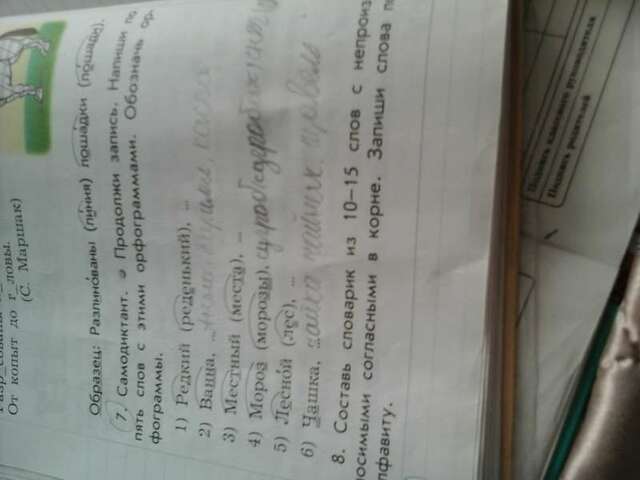 От копыт до г_ловы.
(С. Маршак)
Образец: Разлинованы (линия) лошадки (лошади).
7. Самодиктант. Продолжи запись. Напиши по
пять слов с этими орфограммами. Обозначь ор-
фограммы.
1) Редкий (реденький), ...
2) Ванна, ...
3) Местный (места), ...
4) Мороз (морозы), сугроб
5) Лесной (лес), ...
6) Чашка, ...
8. Составь словарик из 10–15 слов с непроиз-
носимыми согласными в корне. Запиши слова по
алфавиту.
Подпись классного руководителя
Подпись родителей